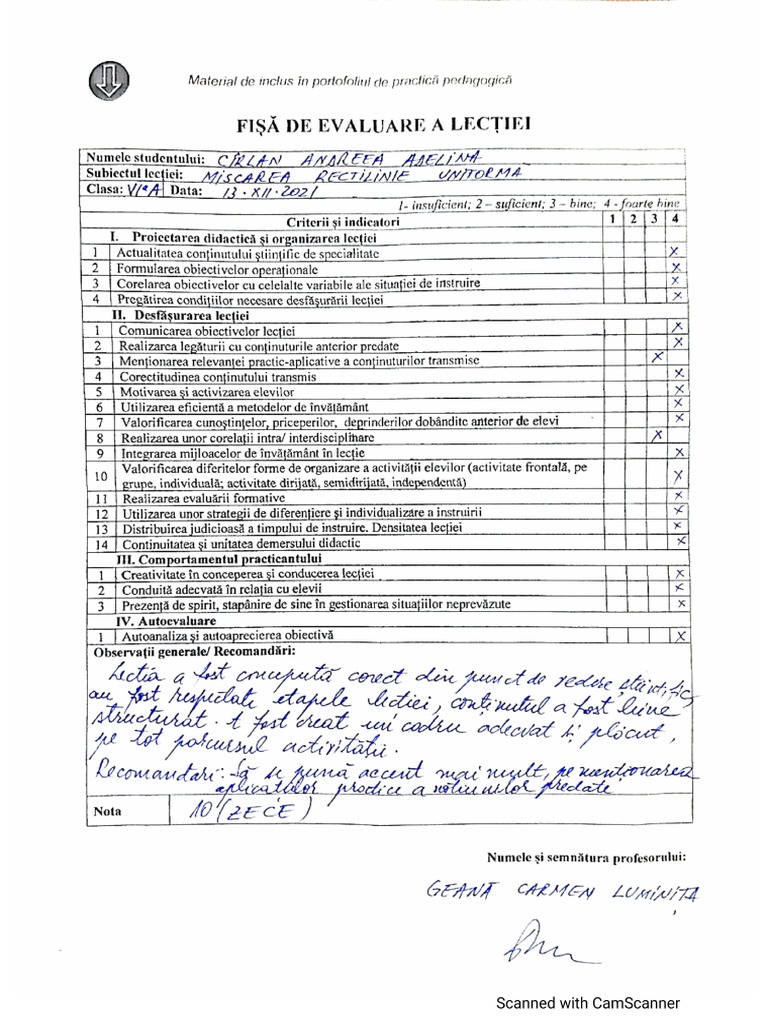 Material de inclus în portofoliul de practică pedagogică
FIȘĂ DE EVALUARE A LECȚIEI
Numele studentului: CÎRLAN ANDREEA ADELINA
Subiectul lecției: MISCAREA RECTILINIE UNIFORMA
Clasa: VIªA Data: 13·XII·2021
1- insuficient; 2 – suficient; 3 – bine; 4 - foarte bine
Criterii și indicatori 1 2 3 4
I. Proiectarea didactică și organizarea lecției
1 Actualitatea conținutului științific de specialitate x
2 Formularea obiectivelor operaționale x
3 Corelarea obiectivelor cu celelalte variabile ale situației de instruire x
4 Pregătirea condițiilor necesare desfășurării lecției x
II. Desfășurarea lecției
1 Comunicarea obiectivelor lecției x
2 Realizarea legăturii cu conținuturile anterior predate x
3 Menționarea relevanței practic-aplicative a conținuturilor transmise x
4 Corectitudinea conținutului transmis x
5 Motivarea și activizarea elevilor x
6 Utilizarea eficientă a metodelor de învățământ x
7 Valorificarea cunoștințelor, priceperilor, deprinderilor dobândite anterior de elevi x
8 Realizarea unor corelații intra/ interdisciplinare x
9 Integrarea mijloacelor de învățământ în lecție x
10 Valorificarea diferitelor forme de organizare a activității elevilor (activitate frontală, pe
grupe, individuală; activitate dirijată, semidirijată, independentă) x
11 Realizarea evaluării formative x
12 Utilizarea unor strategii de diferențiere și individualizare a instruirii x
13 Distribuirea judicioasă a timpului de instruire. Densitatea lecției x
14 Continuitatea și unitatea demersului didactic x
III. Comportamentul practicantului
1 Creativitate în conceperea și conducerea lecției x
2 Conduită adecvată în relația cu elevii x
3 Prezență de spirit, stapânire de sine în gestionarea situațiilor neprevăzute x
IV. Autoevaluare
1 Autoanaliza și autoaprecierea obiectivă x
Observații generale/ Recomandări:
Lectia a fost concepută corect din punct de vedere științific,
au fost respectate etapele lectiei, conținutul a fost bine
structurat. A fost creat un cadru adecvat și plăcut,
pe tot parcursul activității.
Recomandări: Să se pună accent mai mult, pe menționarea
aplicatiilor practice a notiunilor predate
Nota 10 (ZECE)
Numele și semnătura profesorului:
GEANĂ CARMEN LUMINIȚA
Scanned with CamScanner